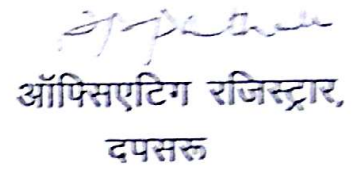 ऑफ्सिएटिग रजिस्ट्रार,
दपसरू